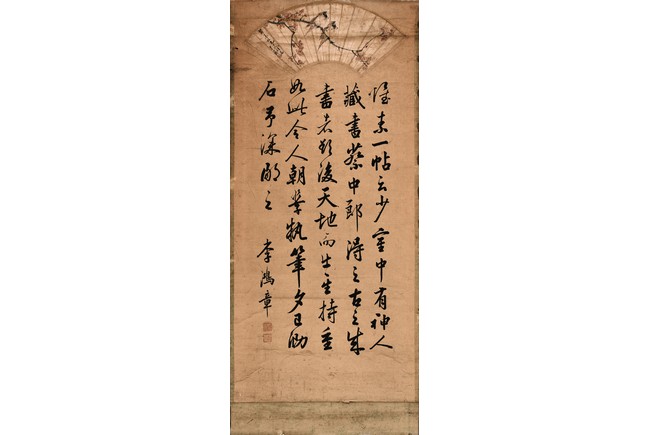 懷素一帖云少室中有神人
藏書蔡中郎得之古之成
書者欲後天地而出其持重
如此今人朝學執筆夕已勒
石予深鄙之
李鴻章